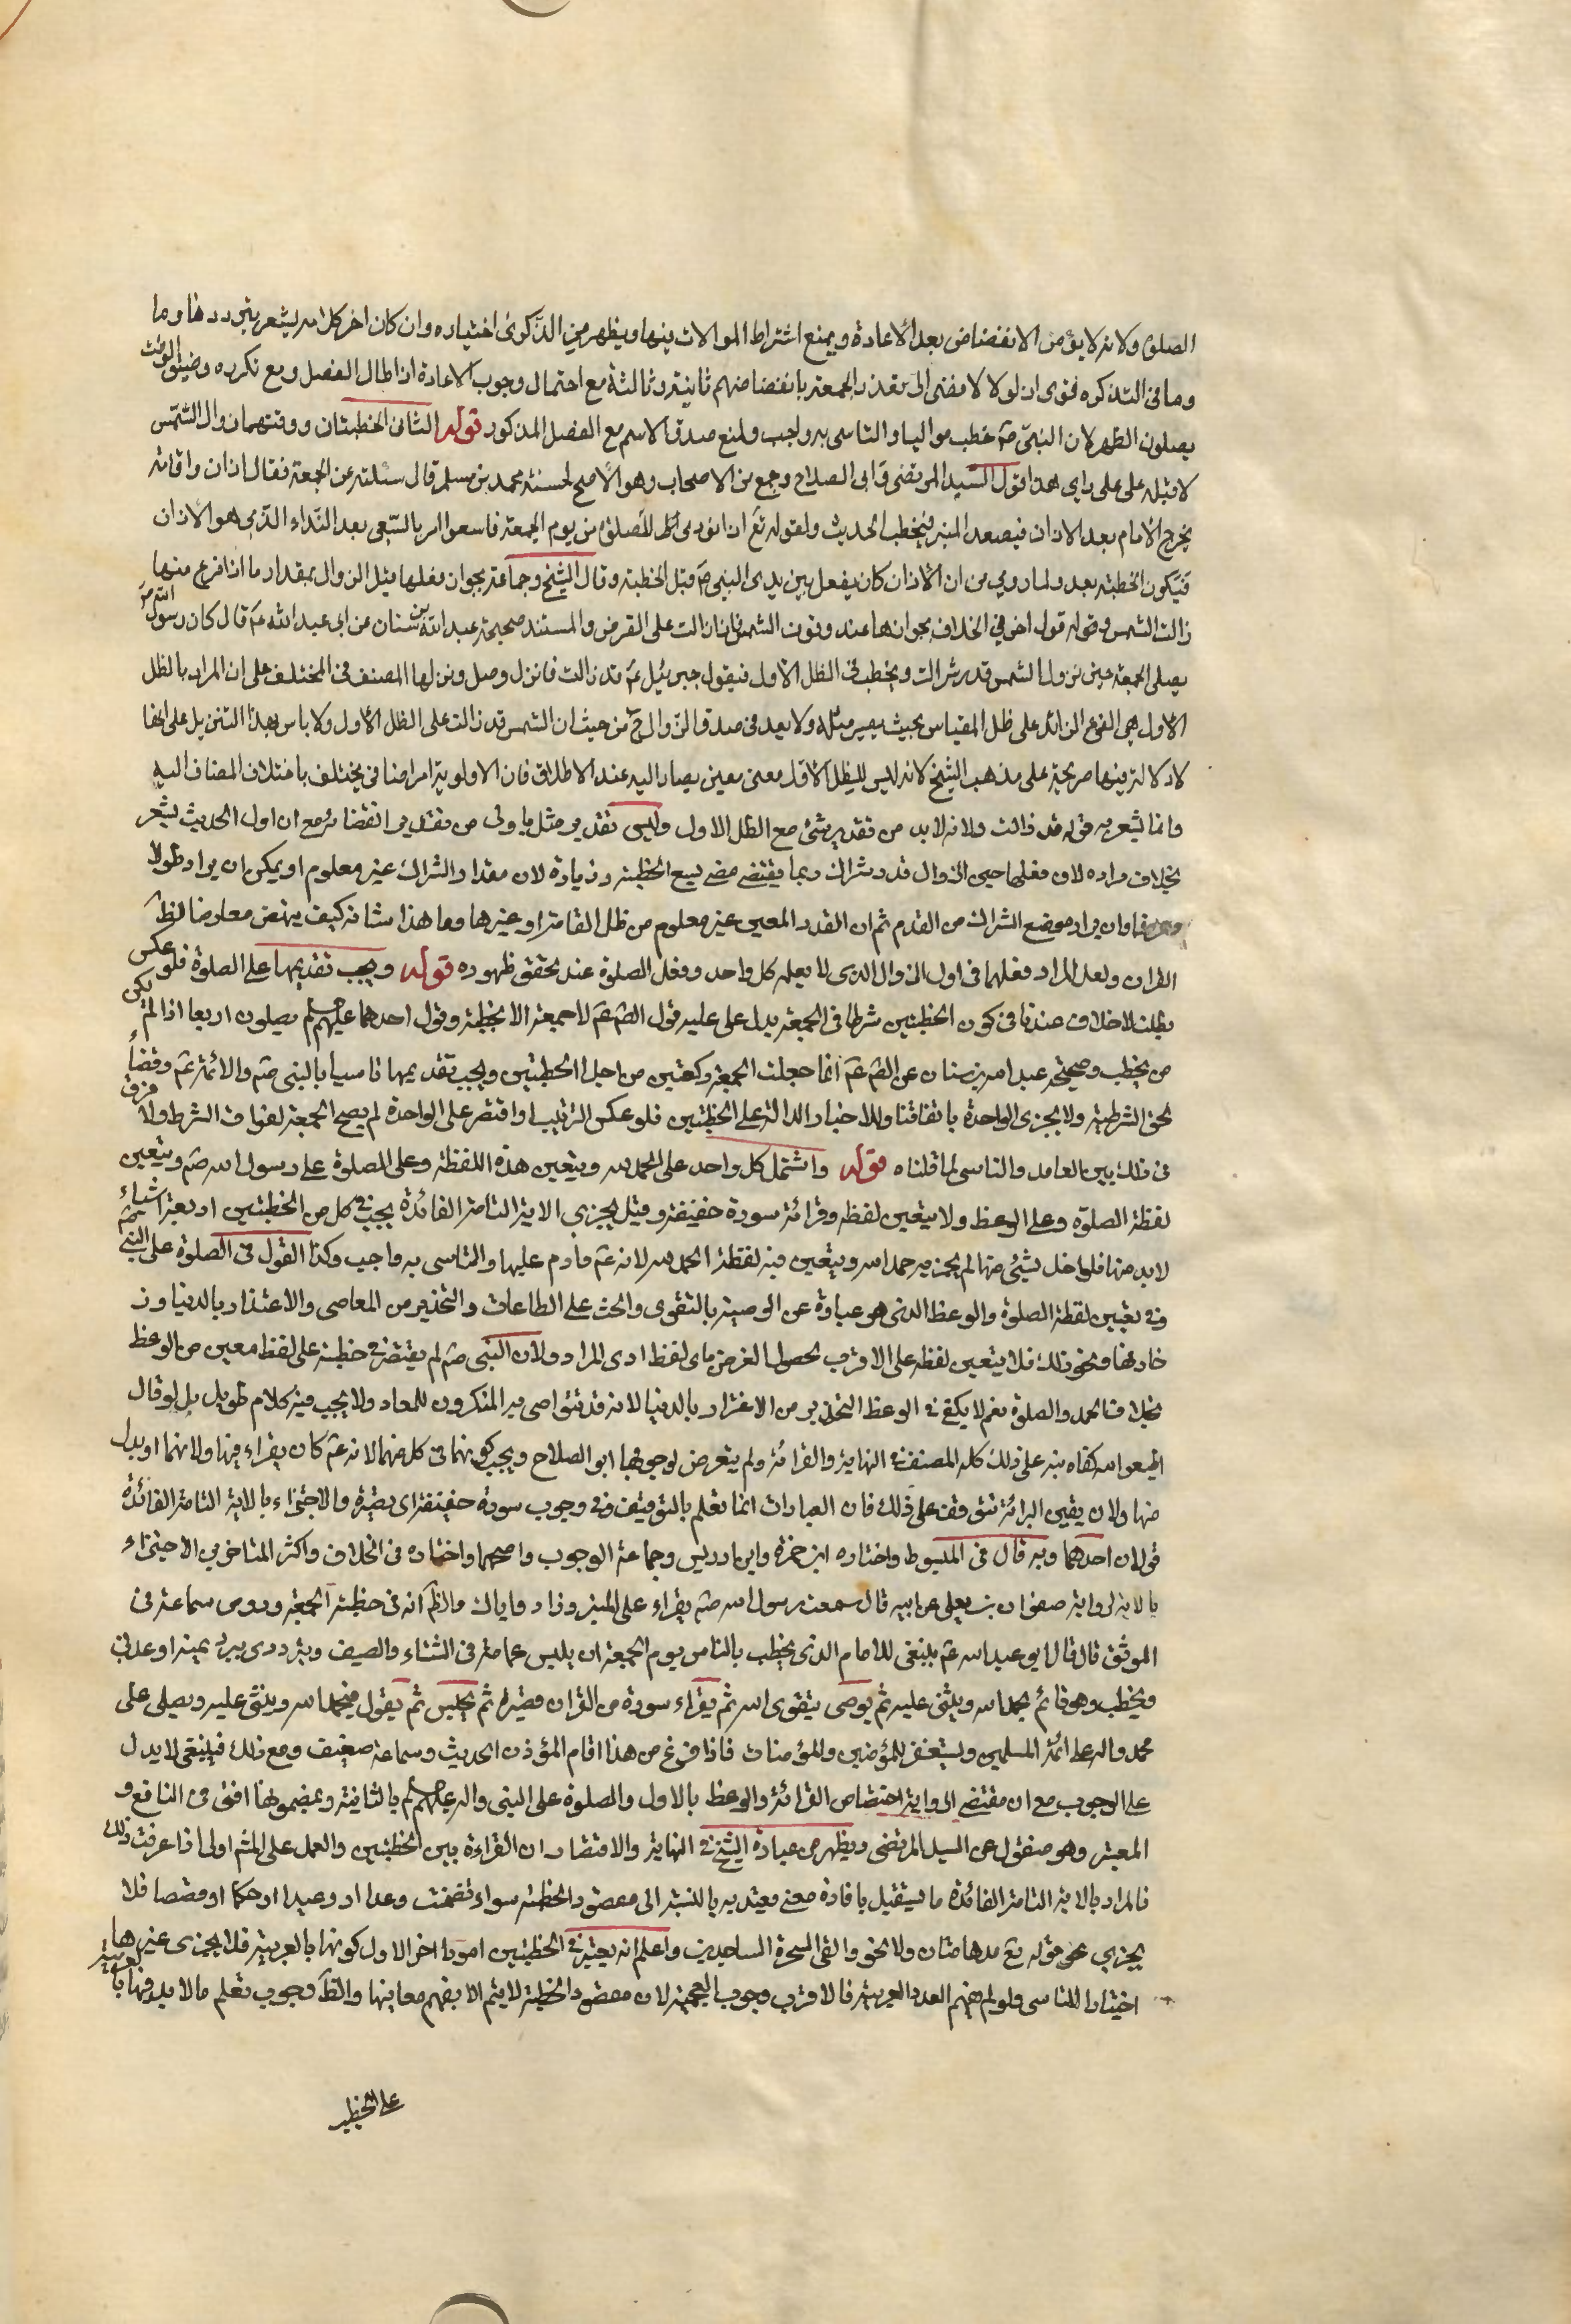 الصلوة ولانه لا يؤمن الانفضاض بعد الاعادة ويمنع اشتراط الموالات بينها ويظهر من الذكرى اختياره وان كان اخر كلامه يشعر بتردد هنا وما
وما فى التذكره فتوى ان لولاه لافضى الى تعذر الجمعة بانفضاضهم ثانية وثالثة مع احتمال وجوب الاعادة اذا طال الفصل ومع تكرره وضيق الوقت
يصلون الظهر لان النبى صم خطب مواليا والتاسى به واجب ولمنع صدق الاسم مع الفصل المذكور قوله الثانى الخطبتان ووقتهما زوال الشمس
لا قبله على راى هذا قول السيد المرتضى وابى الصلاح وجمع من الاصحاب وهو الاصح لحسنة محمد بن مسلم قال سئلته عن الجمعة فقال اذان واقامة
يخرج الامام بعد الاذان فيصعد المنبر فيخطب الحديث ولقوله تع اذا نودى للصلوة من يوم الجمعة فاسعوا امر بالسعى بعد النداء الذى هو الاذان
فيكون الخطبة بعد ولما روى من ان الاذان كان يفعل بين يدى النبى صم قبل الخطبة وقال الشيخ وجماعة بجواز فعلها قبل الزوال بمقدار ما اذا فرغ منها
زالت الشمس وقوله قول اخر فى الخلاف بجوازها عند وقوف الشمس فاذا زالت على الفرض والمستند صحيحة عبد الله بن سنان عن ابى عبد الله عم قال كان رسول الله صم
يصلى الجمعة حين تزول الشمس قدر شراك ويخطب فى الظل الاول فيقول جبرئيل عم قد زالت فانزل وصل ونزلها المصنف فى المختلف على ان المراد بالظل
الاول هى الفئ الزائد على ظل المقياس بحيث يصير مثله ولا بعد فى صدق الزوال ح من حيث ان الشمس قد زالت على الظل الاول ولا باس بهذا التنزيل على انها
لا دلالة فيها صريحة على مذهب الشيخ لانه ليس للظل الاول معنى معين يصار اليه عند الاطلاق فان الاولوية امر اضافى يختلف باختلاف المضاف اليه
وانما يشعر به قوله قد زالت ولانه لا بد من تقدير شئ مع الظل الاول وليس تقدير مثل باولى من تقدير انقضائه مع ان اول الحديث يشعر
بخلاف مراده لان فعلها حين الزوال قدر شراك ربما يقتضى مضى يسع الخطبة وزيادة لان مقدار الشراك غير معلوم او يمكن ان يراد طولا
وعرضا وان يراد موضع الشراك من القدم ثم ان القدر المعين غير معلوم من ظل القامة او غيرها وما هذا شانه كيف ينهض معارضا لظ
القران ولعل المراد فعلهما فى اول الزوال الذى لا يعلمه كل واحد وفعل الصلوة عند تحقق ظهوره قوله ويجب تقديمها على الصلوة فلو عكس
بطلت لا خلاف عندنا فى كون الخطبتين شرطا فى الجمعة يدل على عليه قول الصم عم لا جمعة الا بخطبة وقول احدهما عليهم لم يصلون اربعا اذا لم يكن
من يخطب وصحيحة عبد الله بن سنان عن الصم عم انما جعلت الجمعة ركعتين من اجل الخطبتين ويجب تقديمها تاسيا بالنبى صم والائمة عم وقضاء
لحق الشرطية ولا يجزى الواحدة باتفاقنا وللاخبار الدالة على الخطبتين فلو عكس الترتيب او اقتصر على الواحدة لم يصح الجمعة لفوات الشرط ولا فرق
فى ذلك بين العامد والناسى لما قلناه قوله واشتمل كل واحد على الحمد لله ويتعين هذه اللفظة وعلى الصلوة على رسول الله صم ويتعين
لفظة الصلوة وعلى الوعظ ولا يتعين لفظه وقرائة سورة خفيفة وقيل يجزى الاية التامة الفائدة يجب فى كل من الخطبتين اربعة اشياء
لا بد منها فلو اخل بشئ منها لم يجز به حمد الله ويتعين فيه لفظة الحمد لله لانه عم داوم عليها والتاسى به واجب وكذا القول فى الصلوة على النبى صم
وفى تعيين لفظة الصلوة والوعظ الذى هو عبارة عن الوصية بالتقوى والحث على الطاعات والتحذير من المعاصى والاغترار بالدنيا وز
خارفها ونحو ذلك فلا يتعين لفظه على الاقرب لحصول الغرض باى لفظ ادى المراد ولان النبى صم لم يقتصر فى خطبة على لفظ معين من الوعظ
بخلاف الحمد والصلوة نعم لا يكفى فى الوعظ التحذير من الاغترار بالدنيا لانه قد يتواصى به المنكرون للمعاد ولا يجب فيه كلام طويل بل لو قال
اطيعوا الله كفاه نبه على ذلك كله المصنف فى النهاية والقرائة ولم يتعرض لوجوبها ابو الصلاح ويجب كونها فى كل منهما لانه عم كان يقراء فيها ولانهما او بدل
منها ولان يقين البرائة تتوقف على ذلك فان العبادات انما تعلم بالتوقيف وفى وجوب سورة خفيفة اى قصيرة والاجتزاء بالاية التامة الفائدة
قولان احدهما وبه قال فى المبسوط واختاره ابن حمزة وابن ادريس وجماعة الوجوب واصحهما واختاره فى الخلاف واكثر المتاخرين الاجتزاء
بالاية لرواية صفوان بن يعلى عن ابيه قال سمعت رسول الله صم يقراء على المنبر ونادوا يا مالك والظ انه فى خطبة الجمعة وروى سماعة فى
الموثق قال قال ابو عبد الله عم ينبغى للامام الذى يخطب بالناس يوم الجمعة ان يلبس عمامة فى الشتاء والصيف ويتردى ببرد يمنية او عدنى
ويخطب وهو قائم يحمد الله ويثنى عليه ثم يوصى بتقوى الله ثم يقراء سورة من القران قصيرة ثم يجلس ثم يقول فيحمد الله ويثنى عليه ويصلى على
محمد واله وعلى ائمة المسلمين ويستغفر للمؤمنين والمؤمنات فاذا فرغ من هذا اقام المؤذن الحديث وسماعة ضعيف ومع ذلك فينبغى لا يدل
على الوجوب مع ان مقتضى الرواية اختصاص القرائة والوعظ بالاول والصلوة على النبى واله عليهم لم بالثانية وبمضمونها افتى فى النافع و
المعتبر وهو منقول عن السيد المرتضى ويظهر من عبارة الشيخ فى النهاية والاقتصاد ان القراءة بين الخطبتين والعمل على المشهور اولى اذا عرفت ذلك
فالمراد بالاية التامة الفائدة ما يستقل بافادة معنى معتد به بالنسبة الى مقصود الخطبة سواء تضمنت وعدا او وعيدا او حكما او قصصا فلا
يجزى نحو قوله تع مدهامتان ولا نحو والقى السحرة الساجدين واعلم انه يعتبر فى الخطبتين امور اخر الاول كونها بالعربية فلا يجزى غيرها
اختيارا للتاسى ولو لم يفهم العدد العربية فالاقرب وجوب العجمية لان مقصود الخطبة لا يتم الا بفهم معانيها والظ وجوب تعلم ما لا بد منها بالعربية
على الخطيب